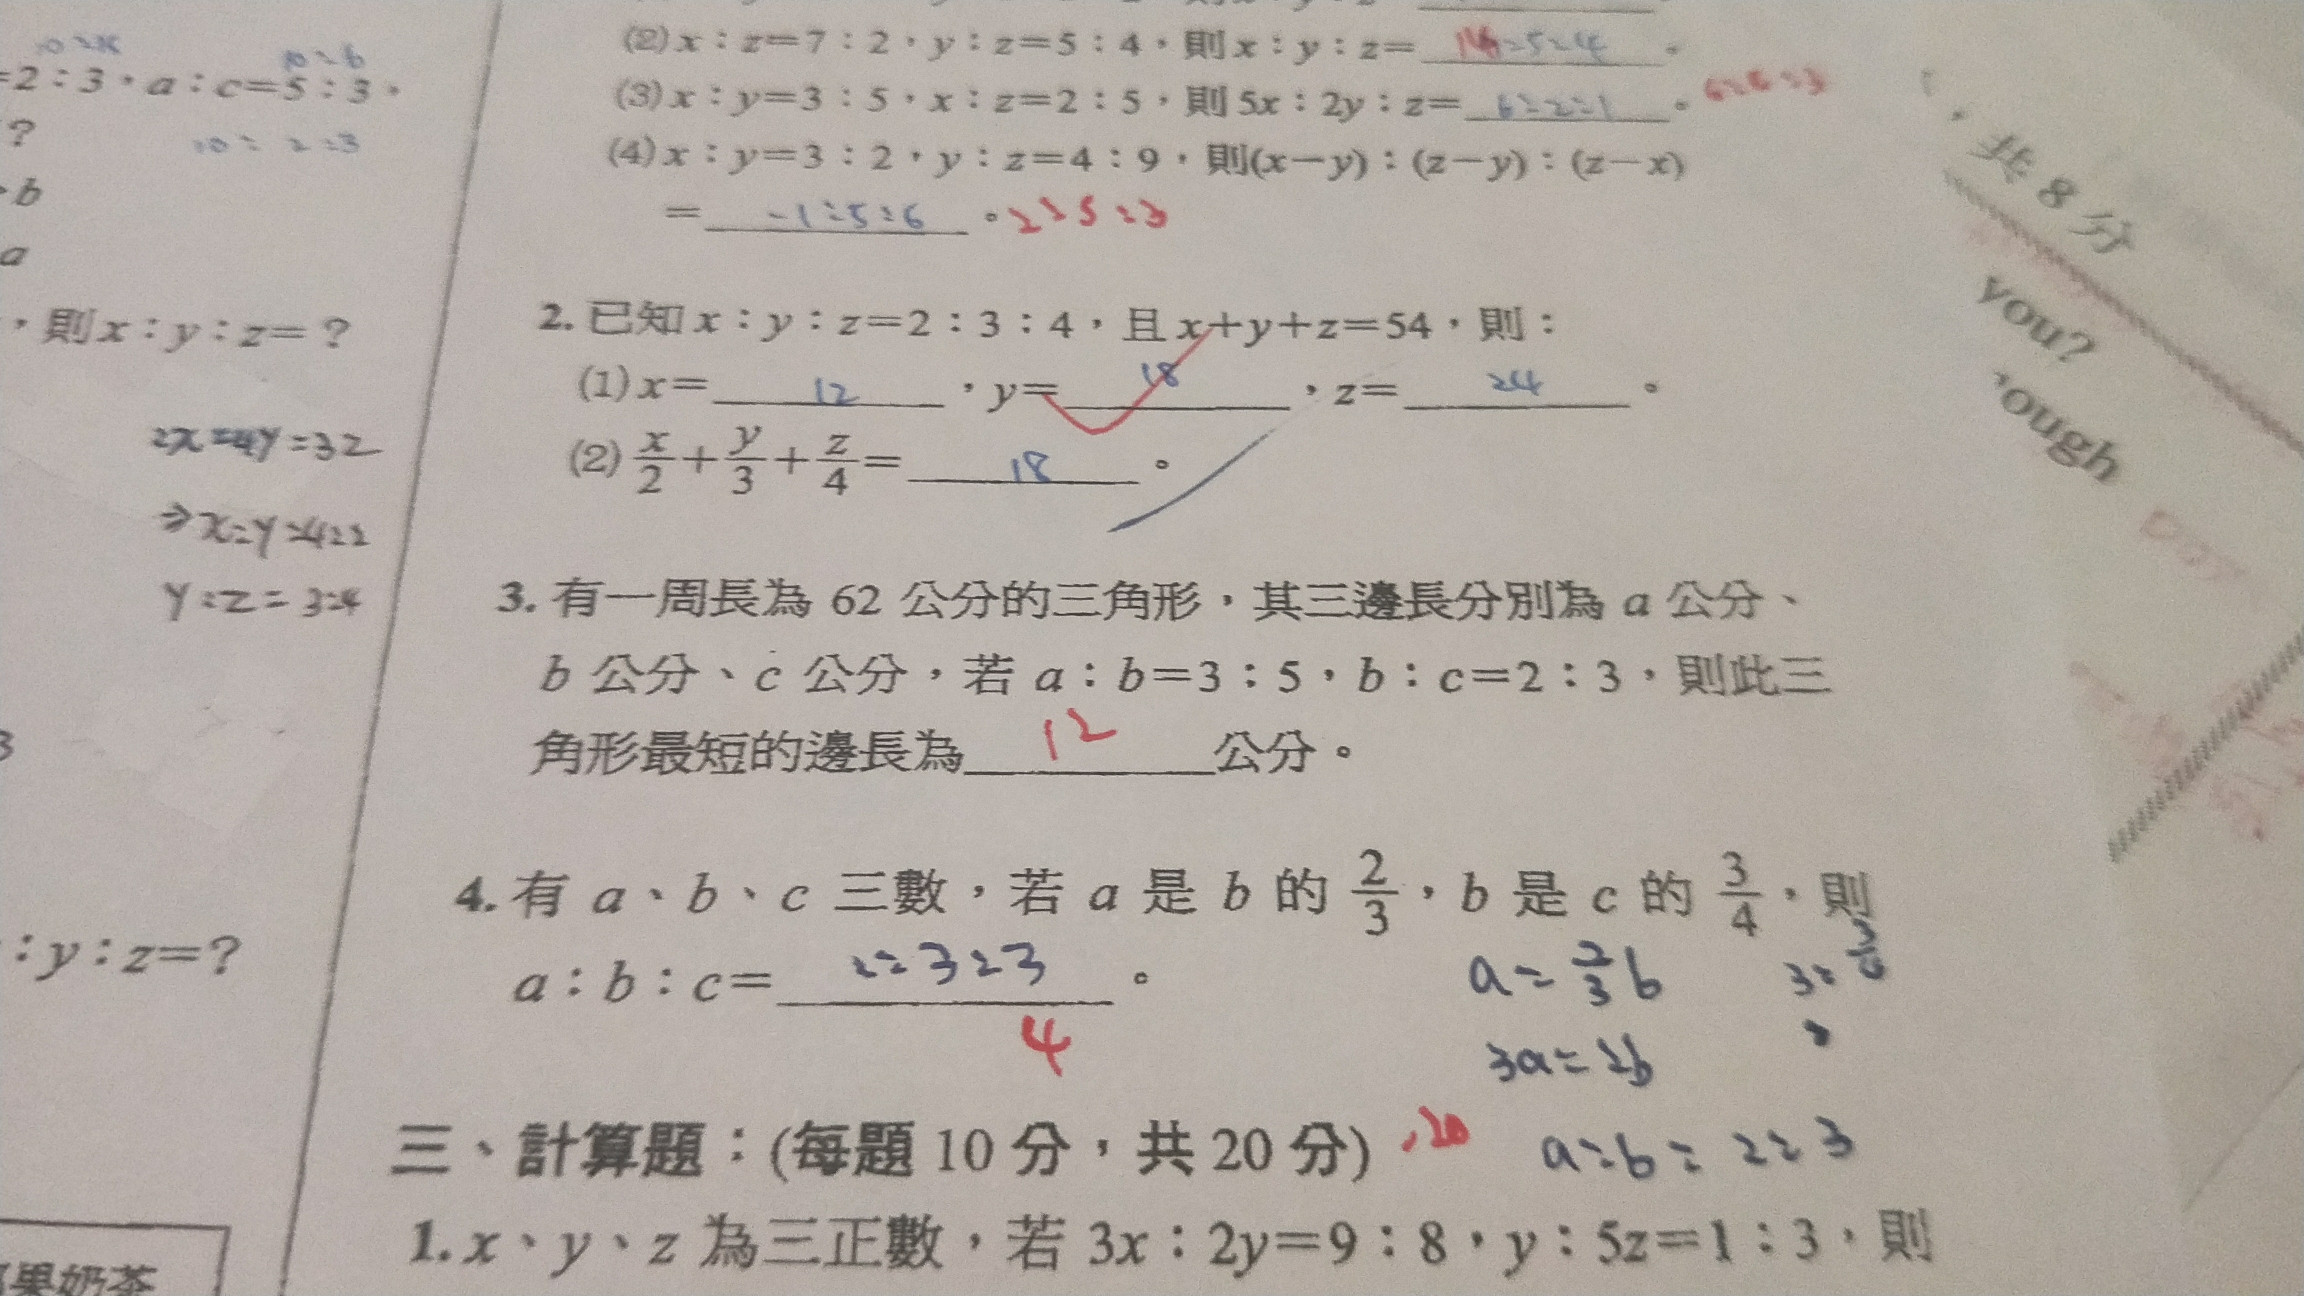 =2：3，a：c=5：3，
10：6
10：2：3
?
b
a
，則x：y：z=？
2x=4y=32
⇒x:y=4:2
y:z=3:4
：y：z=?
果奶茶
(2) x：z=7：2，y：z=5：4，則x：y：z= 14:5:4 。
(3) x：y=3：5，x：z=2：5，則5x：2y：z= 6:2:1 。
(4) x：y=3：2，y：z=4：9，則(x－y)：(z－y)：(z－x)
= -1:5:6 。2:5:3
2. 已知x：y：z=2：3：4，且x+y+z=54，則：
(1) x= 12 ，y= 18 ，z= 24 。
(2) x/2+y/3+z/4= 18 。
3. 有一周長為 62 公分的三角形，其三邊長分別為 a 公分、
b 公分、c 公分，若 a：b=3：5，b：c=2：3，則此三
角形最短的邊長為 12 公分。
4. 有 a、b、c 三數，若 a 是 b 的 2/3，b 是 c 的 3/4，則
a：b：c= 2:3:3 。
4
a=2/3b
3a=2b
a:b=2:3
三、計算題：(每題 10 分，共 20 分)
20
1. x、y、z 為三正數，若 3x：2y=9：8，y：5z=1：3，則
，共 8 分
you?
ough